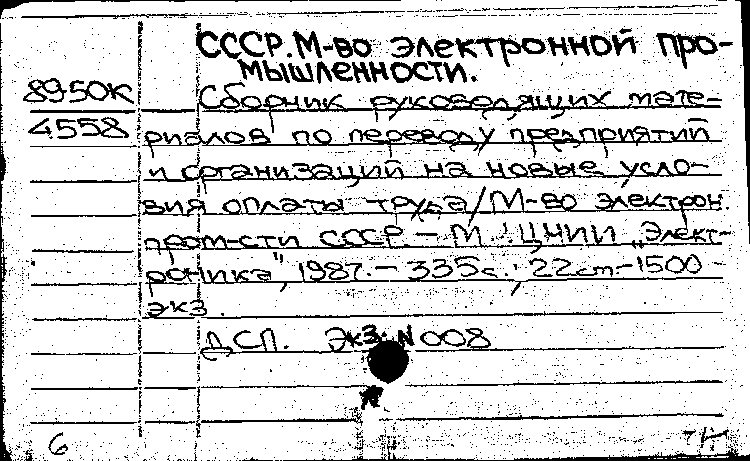 СССР. М-во электронной про-
мышленности.
8950к Сборник руководящих мате-
4558 риалов по переводу предприятий
и организаций на новые усло-
вия оплаты труда/М-во электрон.
пром-сти СССР - М.: ЦНИИ „Элект-
роника", 1987. - 335с.; 22см.- 1500
экз.
ДСП. Экз. N 008
6